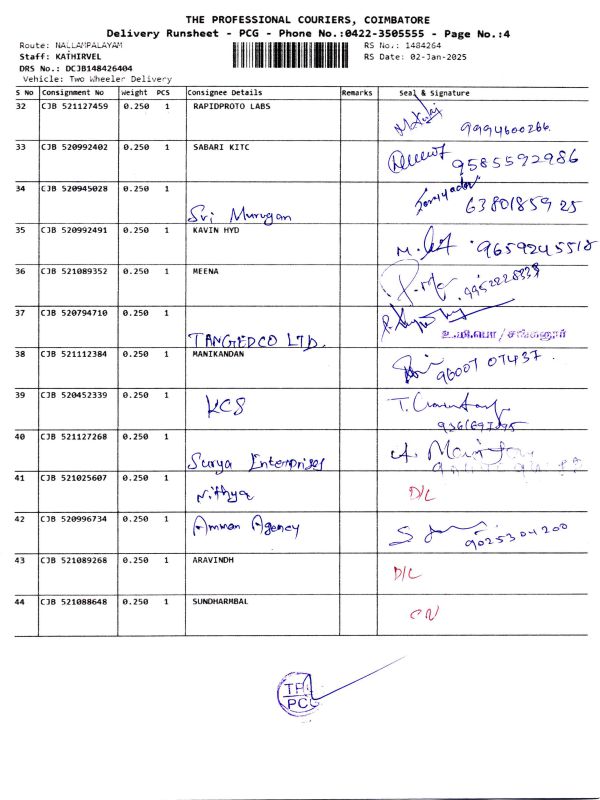 THE PROFESSIONAL COURIERS, COIMBATORE
Delivery Runsheet - PCG - Phone No.:0422-3505555 - Page No.:4
Route: NALLAMPALAYAM RS No.: 1484264
Staff: KATHIRVEL RS Date: 02-Jan-2025
DRS No.: DCJB148426404
Vehicle: Two Wheeler Delivery
S No Consignment No Weight PCS Consignee Details Remarks Seal & Signature
32 CJB 521127459 0.250 1 RAPIDPROTO LABS
9994600266.
33 CJB 520992402 0.250 1 SABARI KITC
9585592986
34 CJB 520945028 0.250 1
Sri Murugan 6380185925
35 CJB 520992491 0.250 1 KAVIN HYD
9659245518
36 CJB 521089352 0.250 1 MEENA
37 CJB 520794710 0.250 1
TANGEDCO LTD.
38 CJB 521112384 0.250 1 MANIKANDAN
9600707437.
39 CJB 520452339 0.250 1 KCS
40 CJB 521127268 0.250 1
Surya Enterprises
41 CJB 521025607 0.250 1 Nithya D/L
42 CJB 520996734 0.250 1 Amman Agency
9025304200
43 CJB 521089268 0.250 1 ARAVINDH
D/L
44 CJB 521088648 0.250 1 SUNDHARMBAL
CN
TPC
PCG